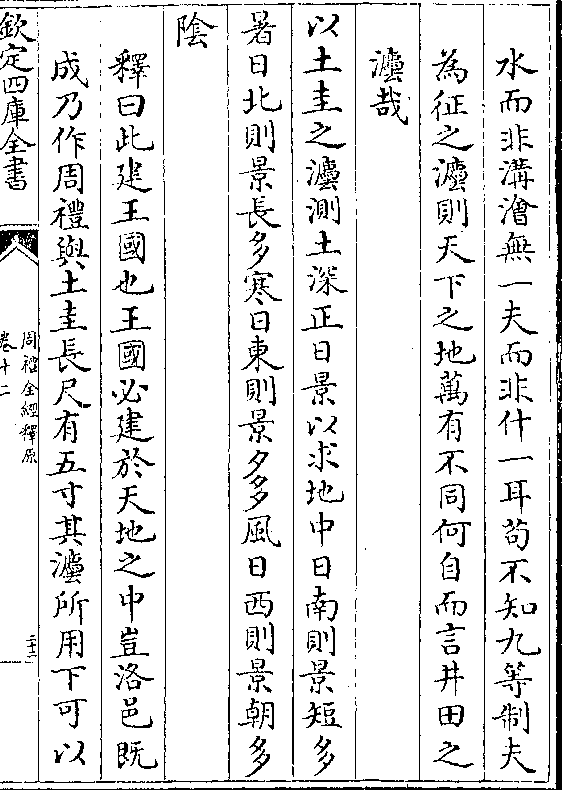 水而非溝澮無一夫而非什一耳苟不知九等制夫
為征之灋則天下之地萬有不同何自而言井田之
灋哉
以土圭之灋測土深正日景以求地中日南則景短多
暑日北則景長多寒日東則景夕多風日西則景朝多
陰
釋曰此建王國也王國必建於天地之中豈洛邑既
成乃作周禮與土圭長尺有五寸其灋所用下可以
欽定四庫全書
周禮全經釋原
卷十二
三十二